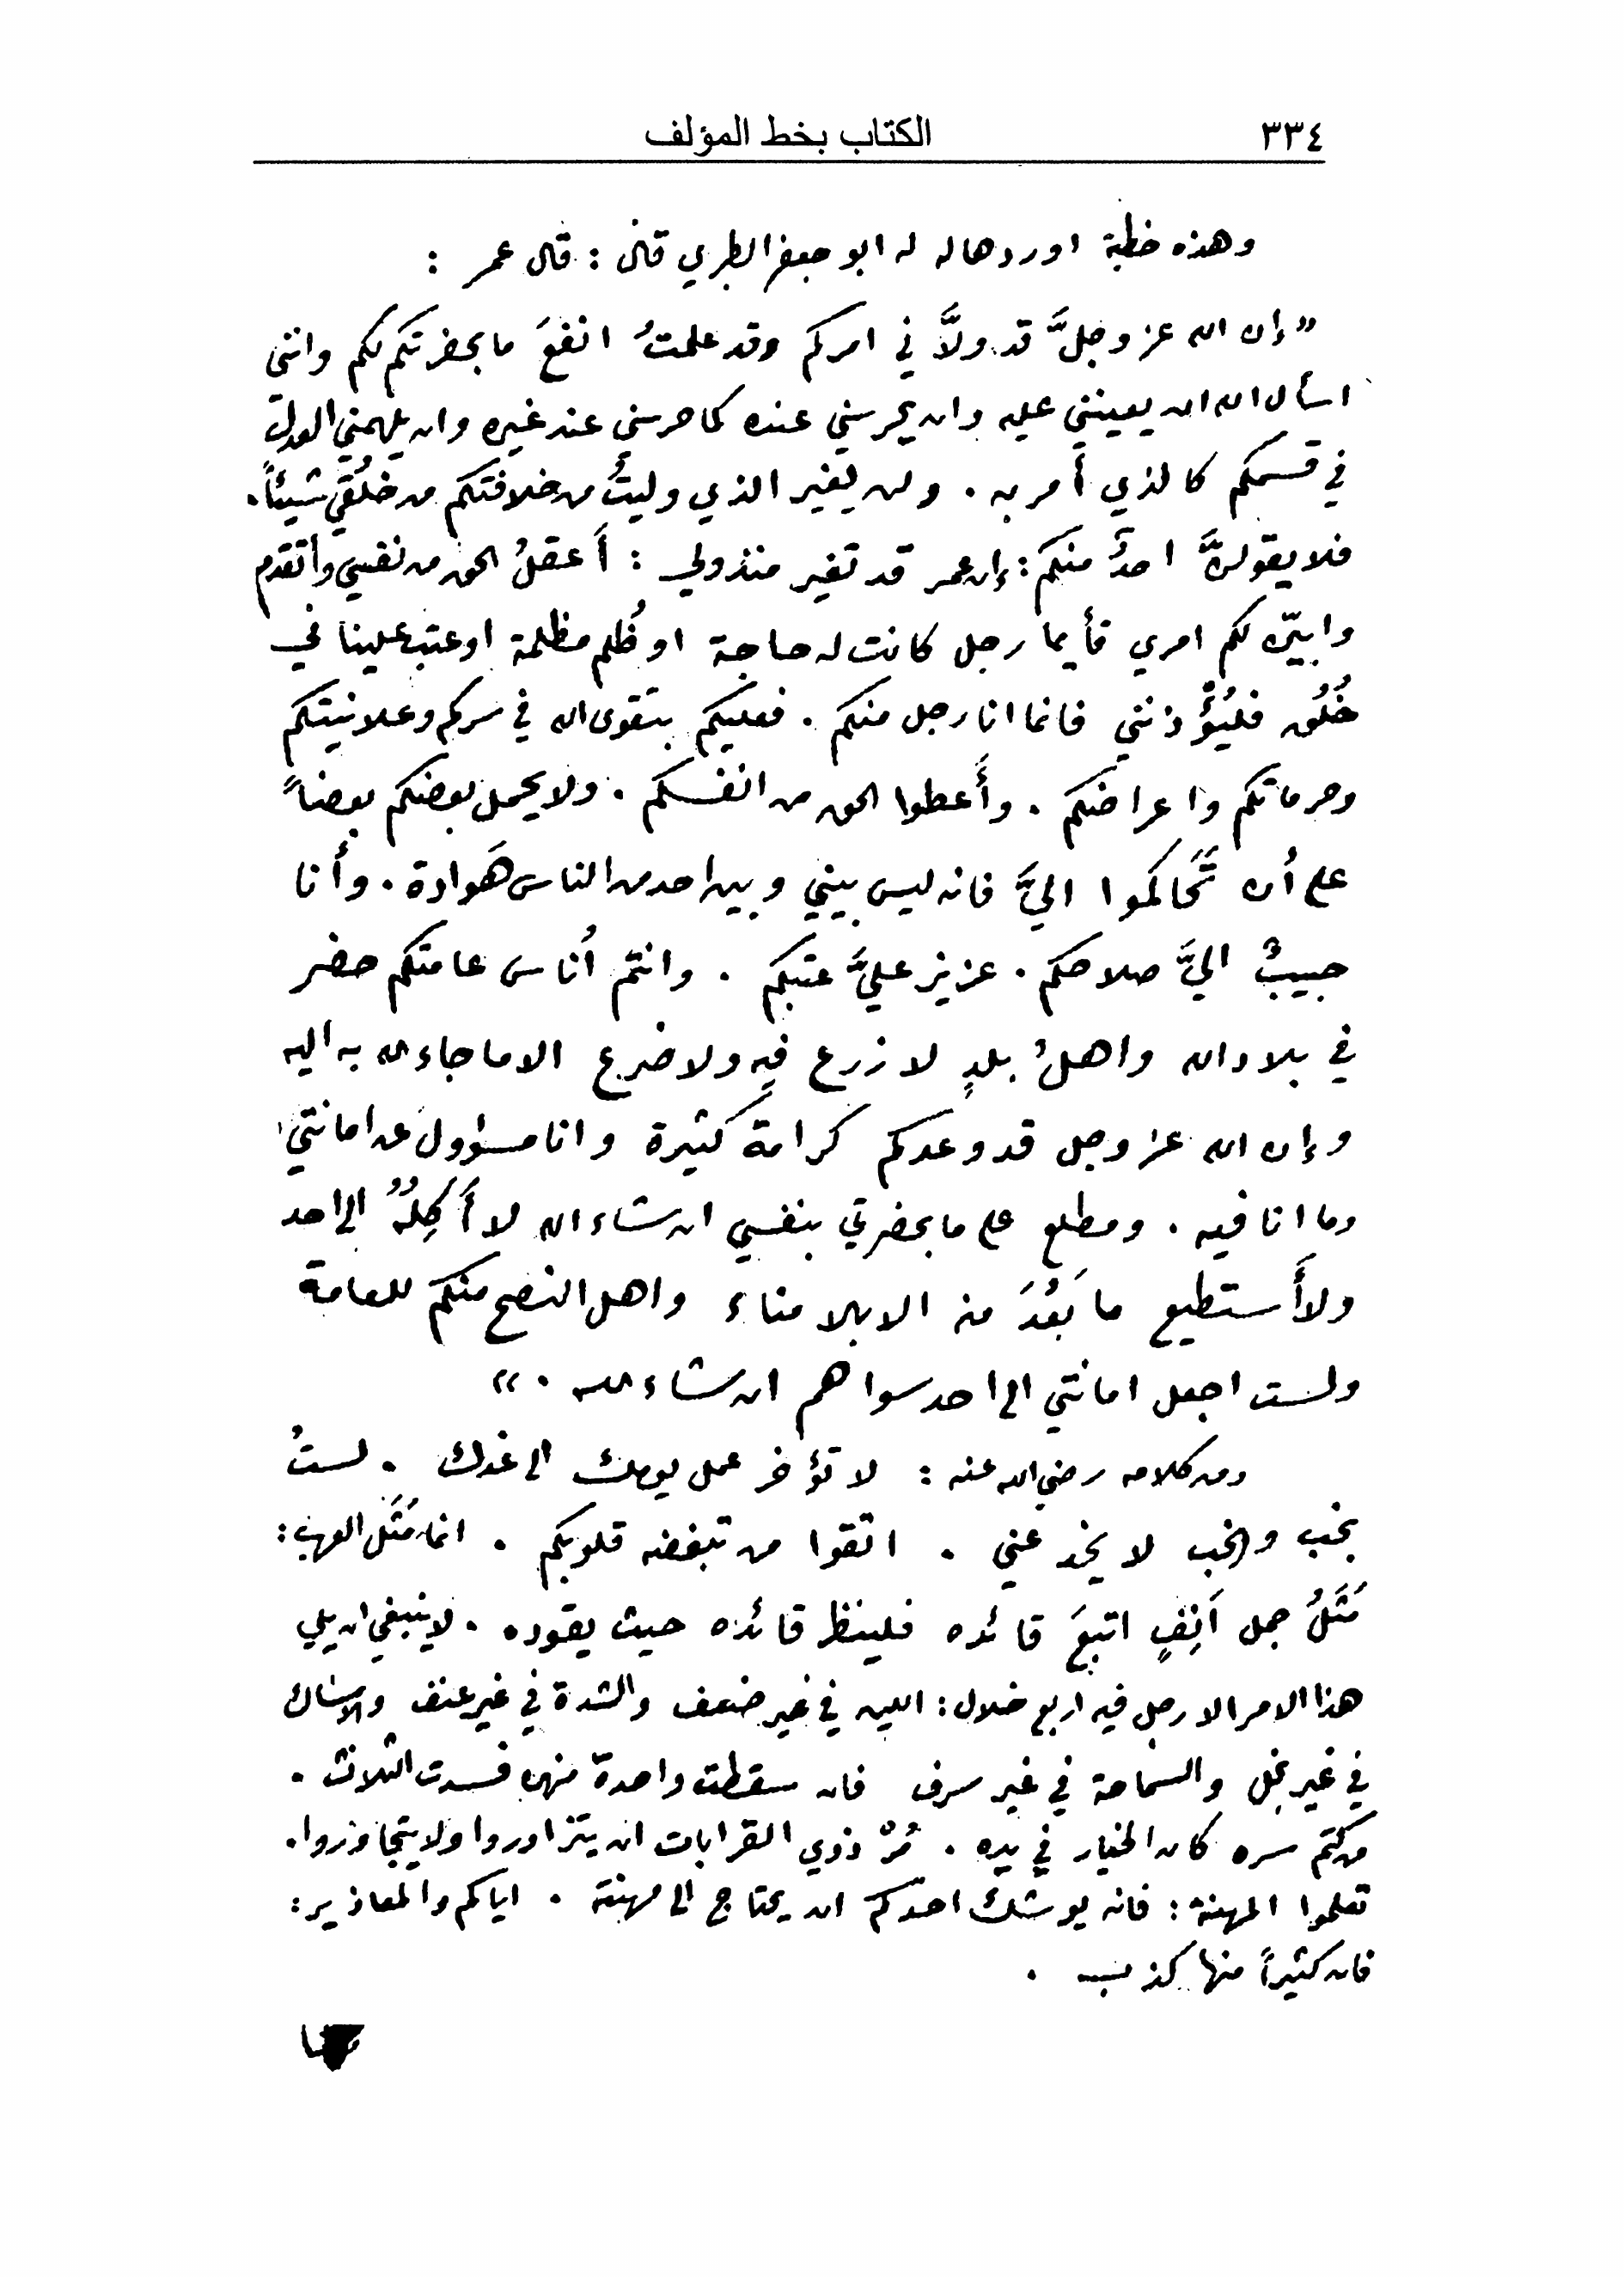 ٣٣٤ الكتاب بخط المؤلف
وهذه خطبة اوردها له ابو جعفر الطبري قال : قال عمر :
« إن الله عز وجلَّ قد ولاَّني امركم وقد علمتُ انفعَ ما بحضرتكم لكم وانني
اسأل الله ان يعينني عليه وان يحرسني عنده كما حرسني عند غيره وان يلهمني العدل
في قسمكم كالذي أمر به . ولن يغير الذي وليتُ من خلافتكم من خلُقي شيئاً .
فلا يقولنَّ احدٌ منكم : إن عمر قد تغير منذ ولي : أَعقلُ الحق من نفسي وأتقدم
وابيّن لكم امري فأيما رجل كانت له حاجة او ظُلم مظلمة او عتب علينا في
خُلُق فليُؤْذنني فانما انا رجل منكم . فعليكم بتقوى الله في سركم وعلانيتكم
وحرماتكم واعراضكم . وأَعطوا الحق من انفسكم . ولا يحمل بعضكم بعضاً
على أن تَحَاكموا اليَّ فانه ليس بيني وبين احد من الناس هَوادة . وأنا
حبيبٌ اليَّ صلاحكم . عزيز عليَّ عتبكم . وانتم أُناس عامتكم حضر
في بلاد الله واهلُ بلدٍ لا زرع فيه ولا ضرع الا ما جاء الله به اليه
وإن الله عز وجل قد وعدكم كرامة كثيرة وانا مسؤول عن امانتي
وما انا فيه . ومطلع على ما بحضرتي بنفسي ان شاء الله لا أَكِلُهُ الى احد
ولا أَستطيع ما بَعُدَ منه الا بالامناء واهل النصح منكم للعامة
ولست اجعل امانتي الى احد سواهم ان شاء الله . »
ومن كلامه رضي الله عنه : لا تؤخر عمل يومك الى غدك . لستُ
بخب والخب لا يخدعني . اتقوا من تبغضه قلوبكم . انما مَثَل العرب :
مَثَلُ جمل اَنِفٍ اتبعَ قائده فلينظر قائده حيث يقوده . لا ينبغي ان يلي
هذا الامر الا رجل فيه اربع خلال : اللين في غير ضعف والشدة في غير عنف والامساك
في غير بخل والسماحة في غير سرف فان سقطت واحدة منهن فسدت الثلاث .
من كتم سره كان الخيار في يده . مُرْ ذوي القرابات ان يتزاوروا ولا يتجاوروا .
تعلموا المهنة : فانه يوشك احدكم ان يحتاج الى مهنة . اياكم والمعاذير :
فان كثيراً منها كذب .